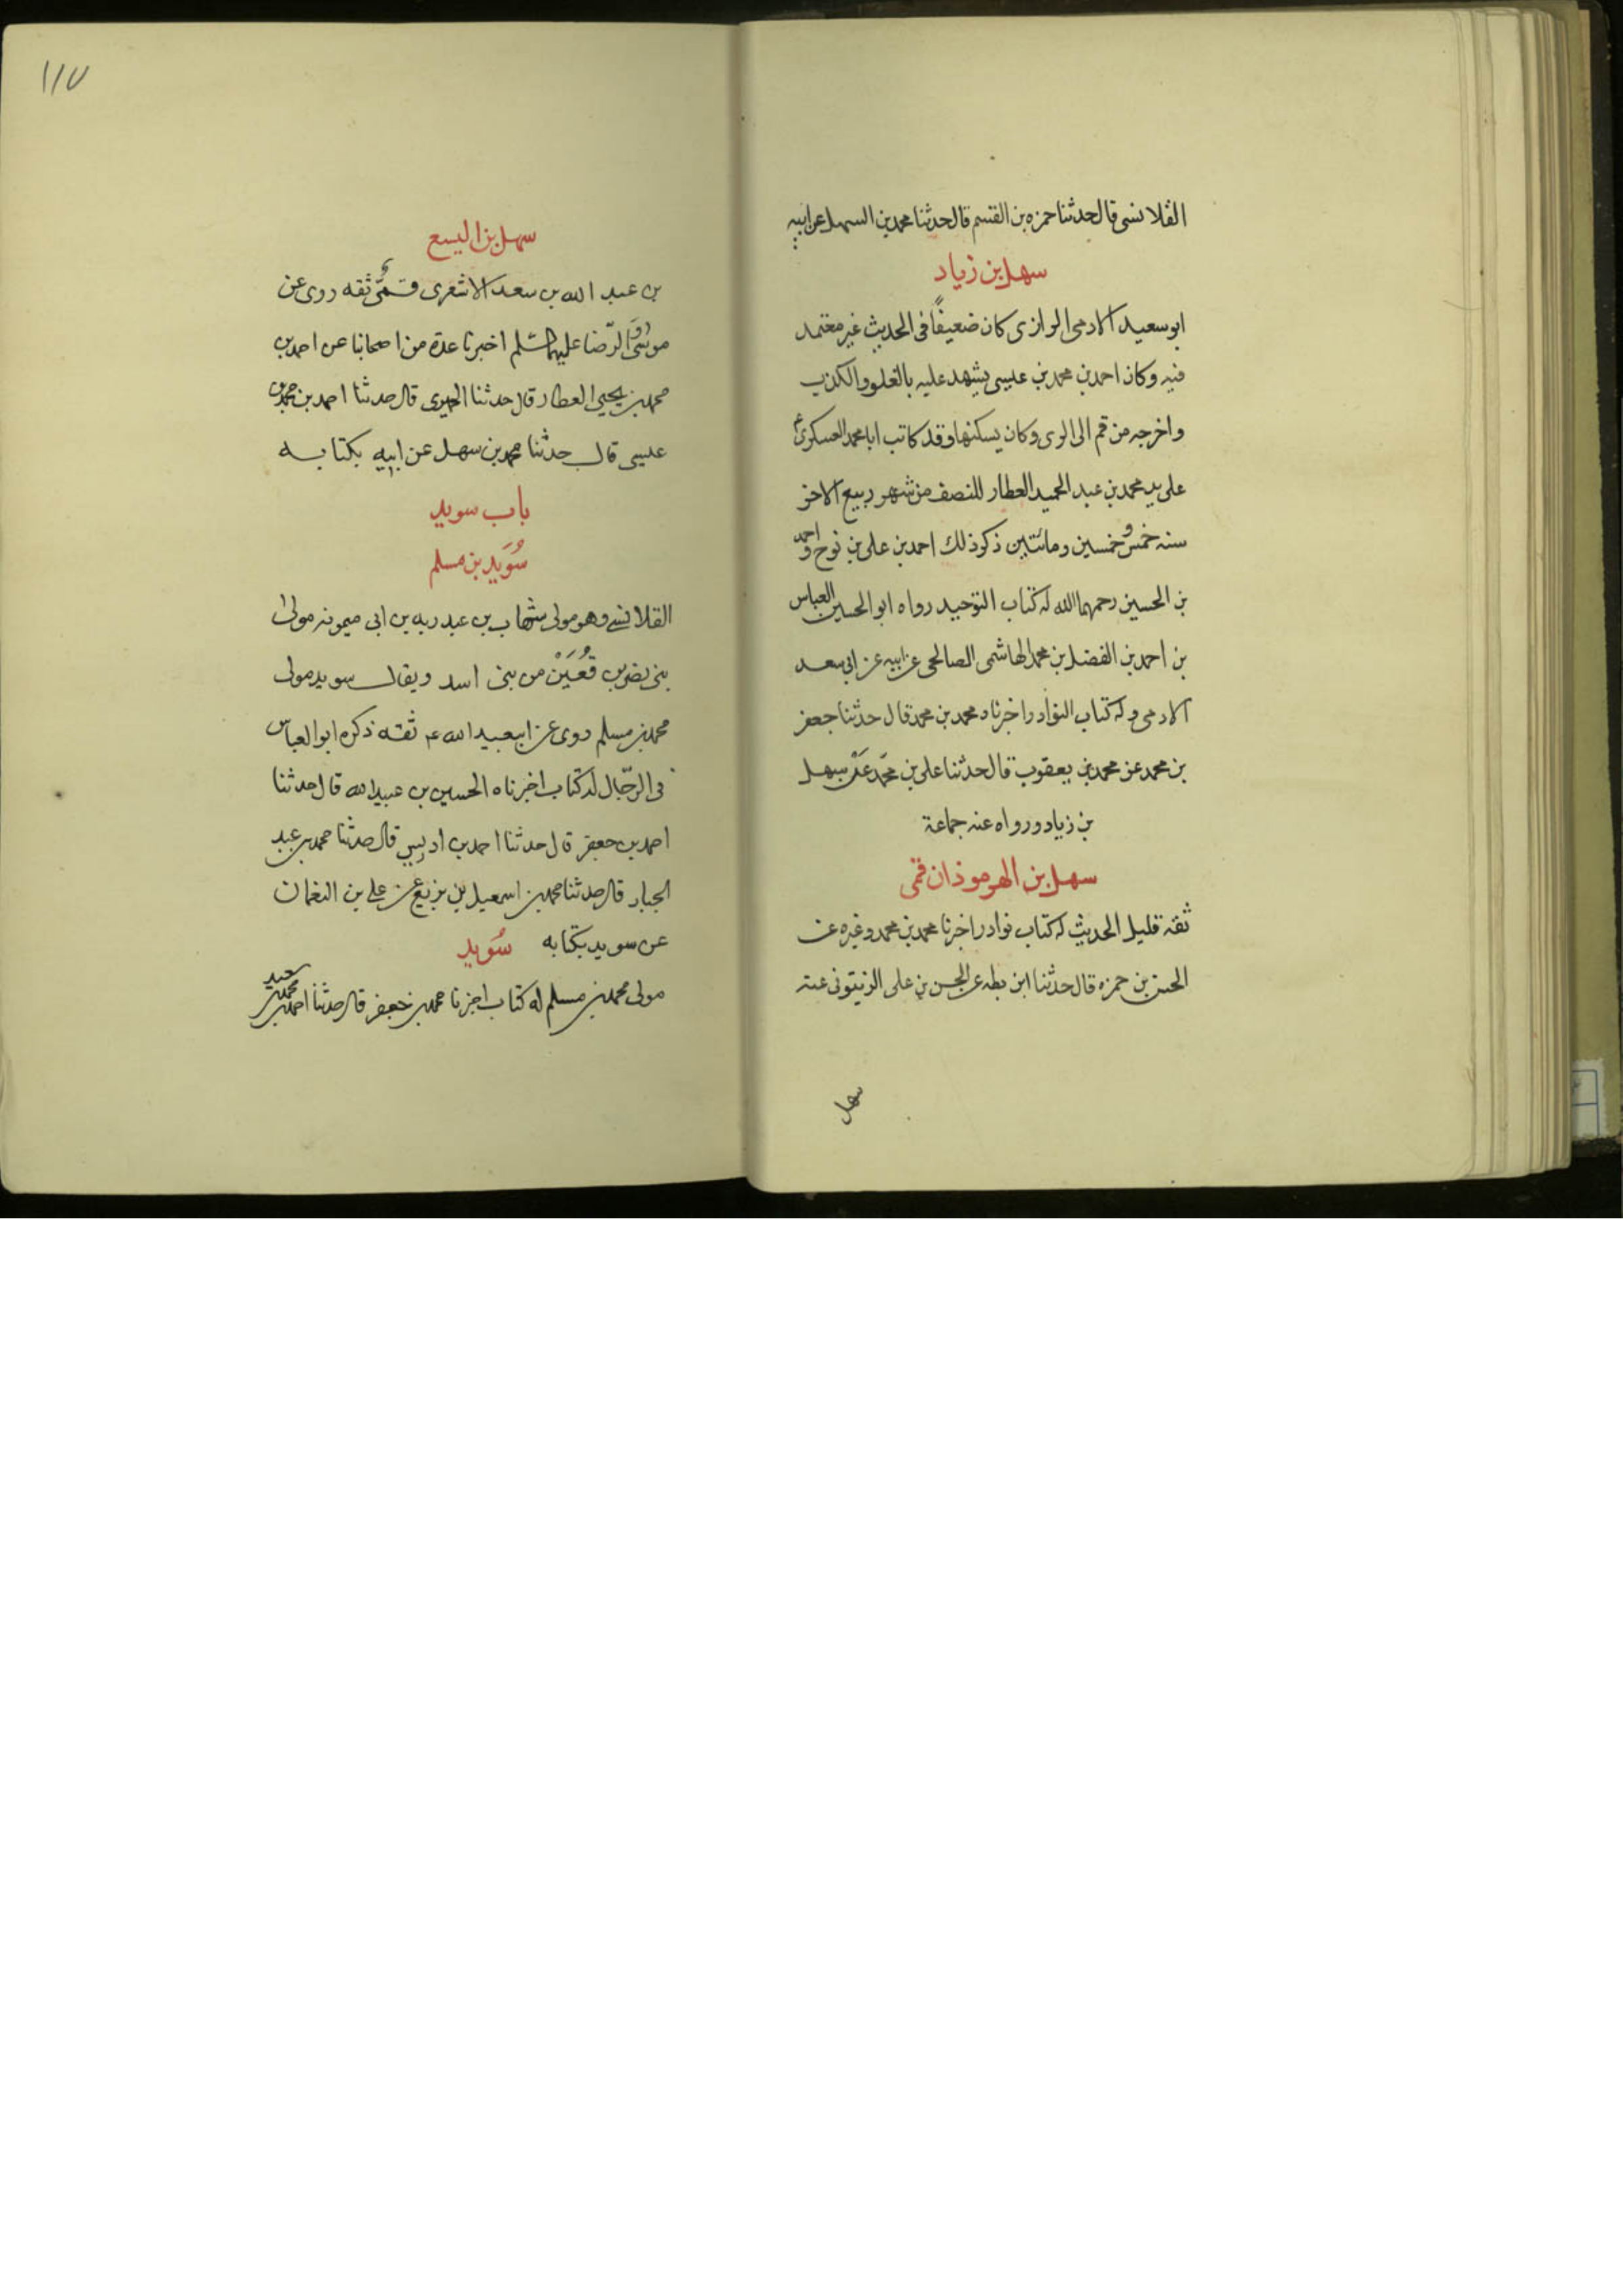 القلانسی قال حدثنا حمزه بن القسم قال حدثنا محمد بن السهل عن ابیه
سهل بن زیاد
ابو سعید الادمی الرازی کان ضعیفاً فی الحدیث غیر معتمد
فیه وکان احمد بن محمد بن عیسی یشهد علیه بالغلو والکذب
واخرجه من قم الی الری وکان یسکنها وقد کاتب ابا محمد العسکری ع
علی ید محمد بن عبد الحمید العطار للنصف من شهر ربیع الاخر
سنه خمس و خمسین ومائتین ذکر ذلک احمد بن علی بن نوح و احمد
بن الحسین رحمهما الله له کتاب التوحید رواه ابو الحسن العباس
بن احمد بن الفضل بن محمد الهاشمی الصالحی عن ابیه عن ابی سعد
الادمی وله کتاب النوادر اخبرناه محمد بن محمد قال حدثنا جعفر
بن محمد عن محمد بن یعقوب قال حدثنا علی بن محمّد عَنْ سهل
بن زیاد ورواه عنه جماعة
سهل بن الهرموذان قمی
ثقة قلیل الحدیث له کتاب نوادر اخبرنا محمد بن محمد وغیره عن
الحسن بن حمزه قال حدثنا ابن بطه عن الحسن بن علی الزیتونی عنه
سهل
۱۱۷
سهل بن الیسع
بن عبد الله بن سعد الاشعری قمّی ثقه روی عن
موسی وَ الرّضا علیهما السّلم اخبرنا عدة من اصحابنا عن احمد بن
محمد بن یحیی العطار قال حدثنا الحمیری قال حدثنا احمد بن محمد بن
عیسی قال حدثنا محمد بن سهل عن ابیه بکتابه
باب سوید
سُوَید بن مسلم
القلانسی وهو مولی شهاب بن عبد ربه بن ابی میمونه مولی
بنی نضر بن قُعَیْن من بنی اسد ویقال سوید مولی
محمد بن مسلم روی عن ابیعبد الله ع ثقه ذکره ابو العباس
فی الرّجال له کتاب اخبرناه الحسین بن عبید الله قال حدثنا
احمد بن جعفر قال حدثنا احمد بن ادریس قال حدثنا محمد بن عبد
الجبار قال حدثنا محمد بن اسمعیل بن بزیع عن علی بن النعمان
عن سوید بکتابه سُوَید
مولی محمد بن مسلم له کتاب اخبرنا محمد بن جعفر قال حدثنا احمد بن محمد بن سعید